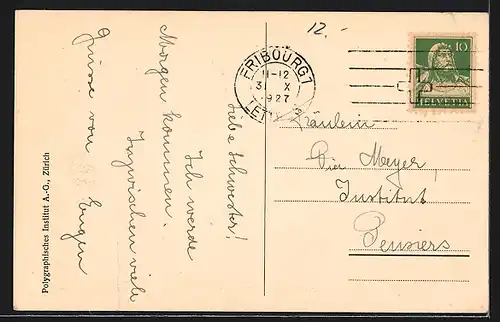 12.-
Liebe Schwester!
Ich werde
Morgen kommen.
Inzwischen viele
Grüsse von
Eugen
FRIBOURG 1
11-12
31 X
1927
10
HELVETIA
Fräulein
Meyer,
Institut
Pensiers
Polygraphisches Institut A.-G., Zürich